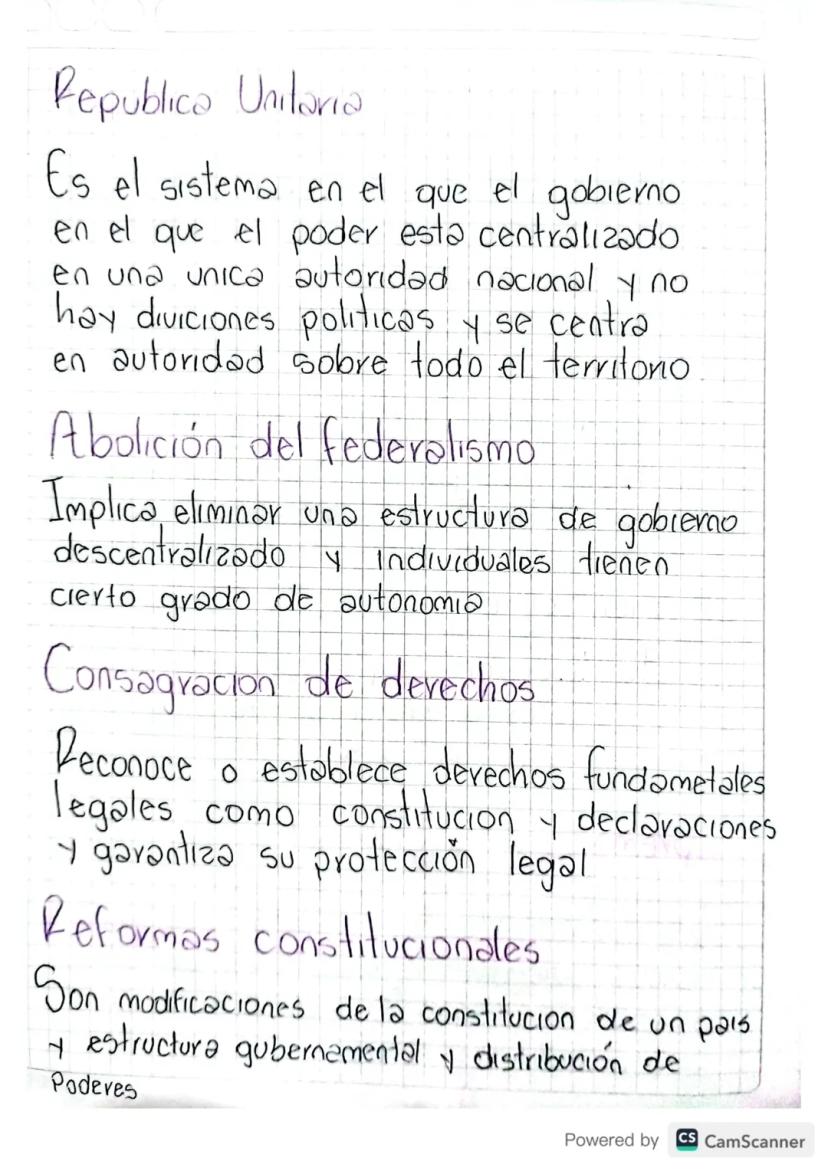 Republica Unitaria
Es el sistema en el que el gobierno
en el que el poder esta centralizado
en una unica autoridad nacional y no
hay diviciones politicas y se centra
en autoridad sobre todo el territorio
Abolición del federalismo
Implica eliminar una estructura de gobierno
descentralizado y individuales tienen
cierto grado de autonomia
Consagracion de derechos
Reconoce o establece derechos fundametales
legales como constitucion y declaraciones
y garantiza su protección legal
Reformas constitucionales
Son modificaciones de la constitucion de un pais
y estructura gubernamental y distribución de
Poderes
Powered by CS CamScanner